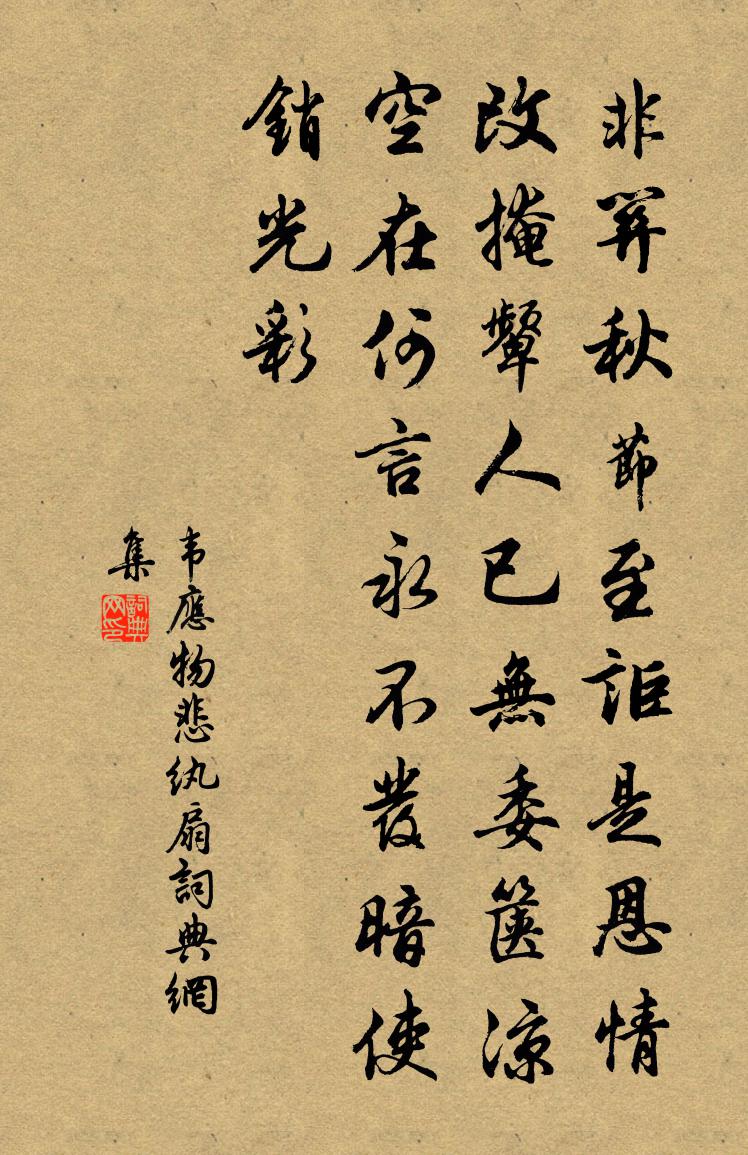 非關秋節至詎是恩情
改掩顰人已無委篋涼
空在何言永不發暗使
銷光彩
韦應物悲紈扇詞典網
集
詞典网印